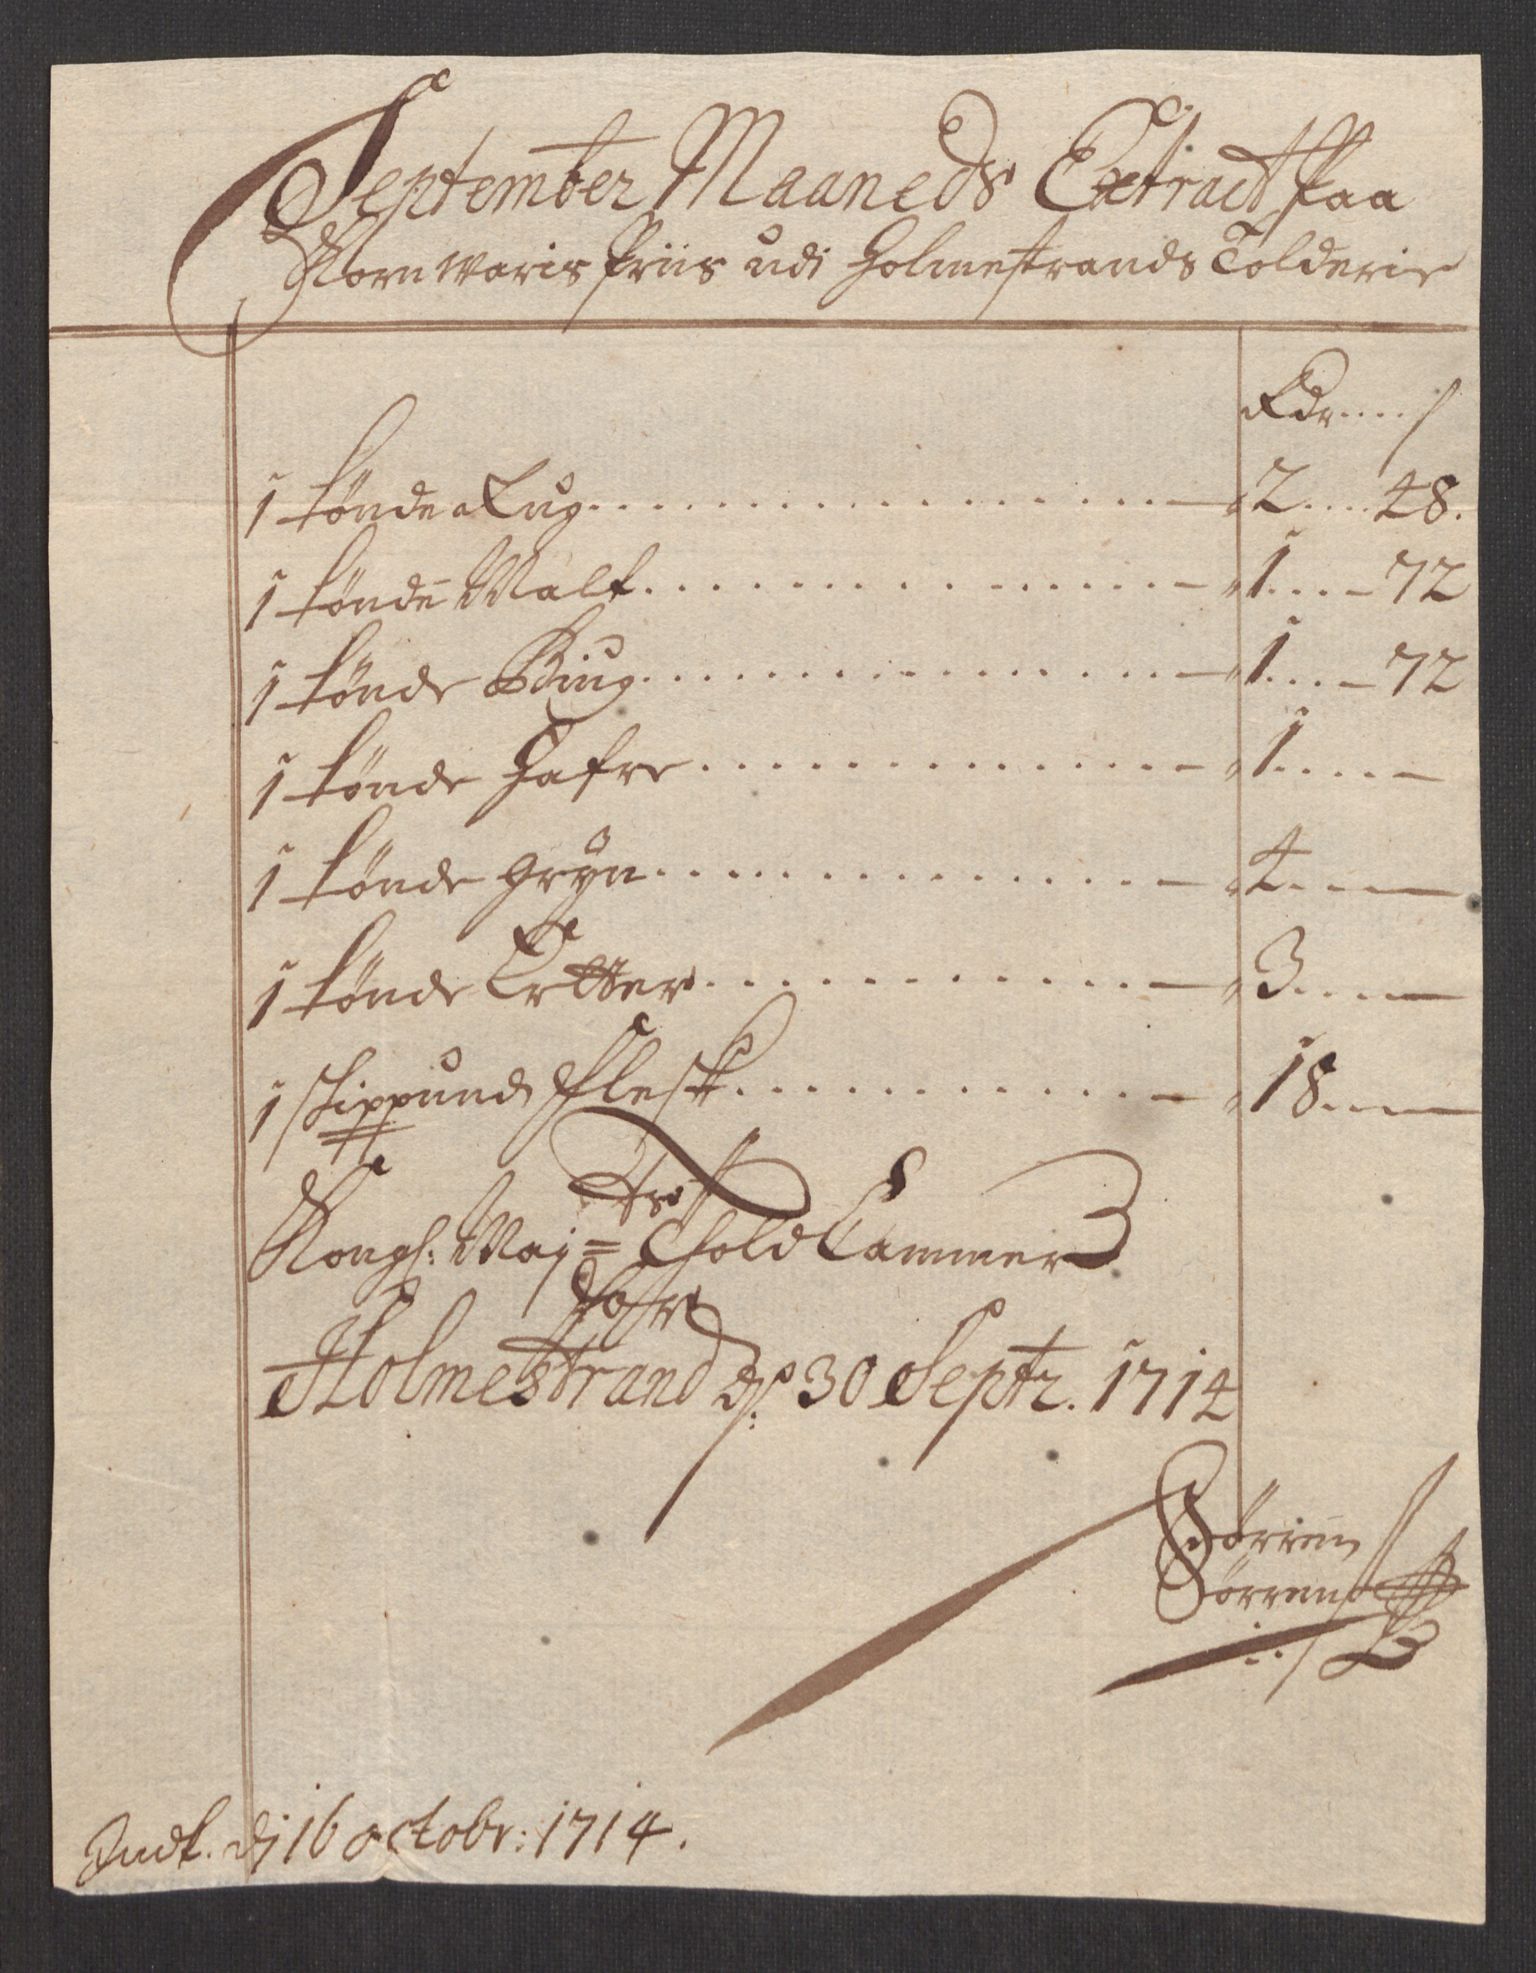 September Maaneds Extract paa
Korn waris priis udi Holmestrands Tolderie
Rdr....s
1 tønde Rug. . . . 2....48.
1 tønde Malt. . . . 1....72
1 tønde Biug. . . . 1....72
1 tønde Hafre . . . . 1....-
1 tønde gryn. . . . 4....-
1 tønde Ertter. . . . 3....-
1 skippund Flesk. . . . 18....-
Kongl: May = Told Cammer
Holmestrand d: 30 Septr. 1714
Sørren
Sørrens
Indk. dj 16 octobr: 1714.